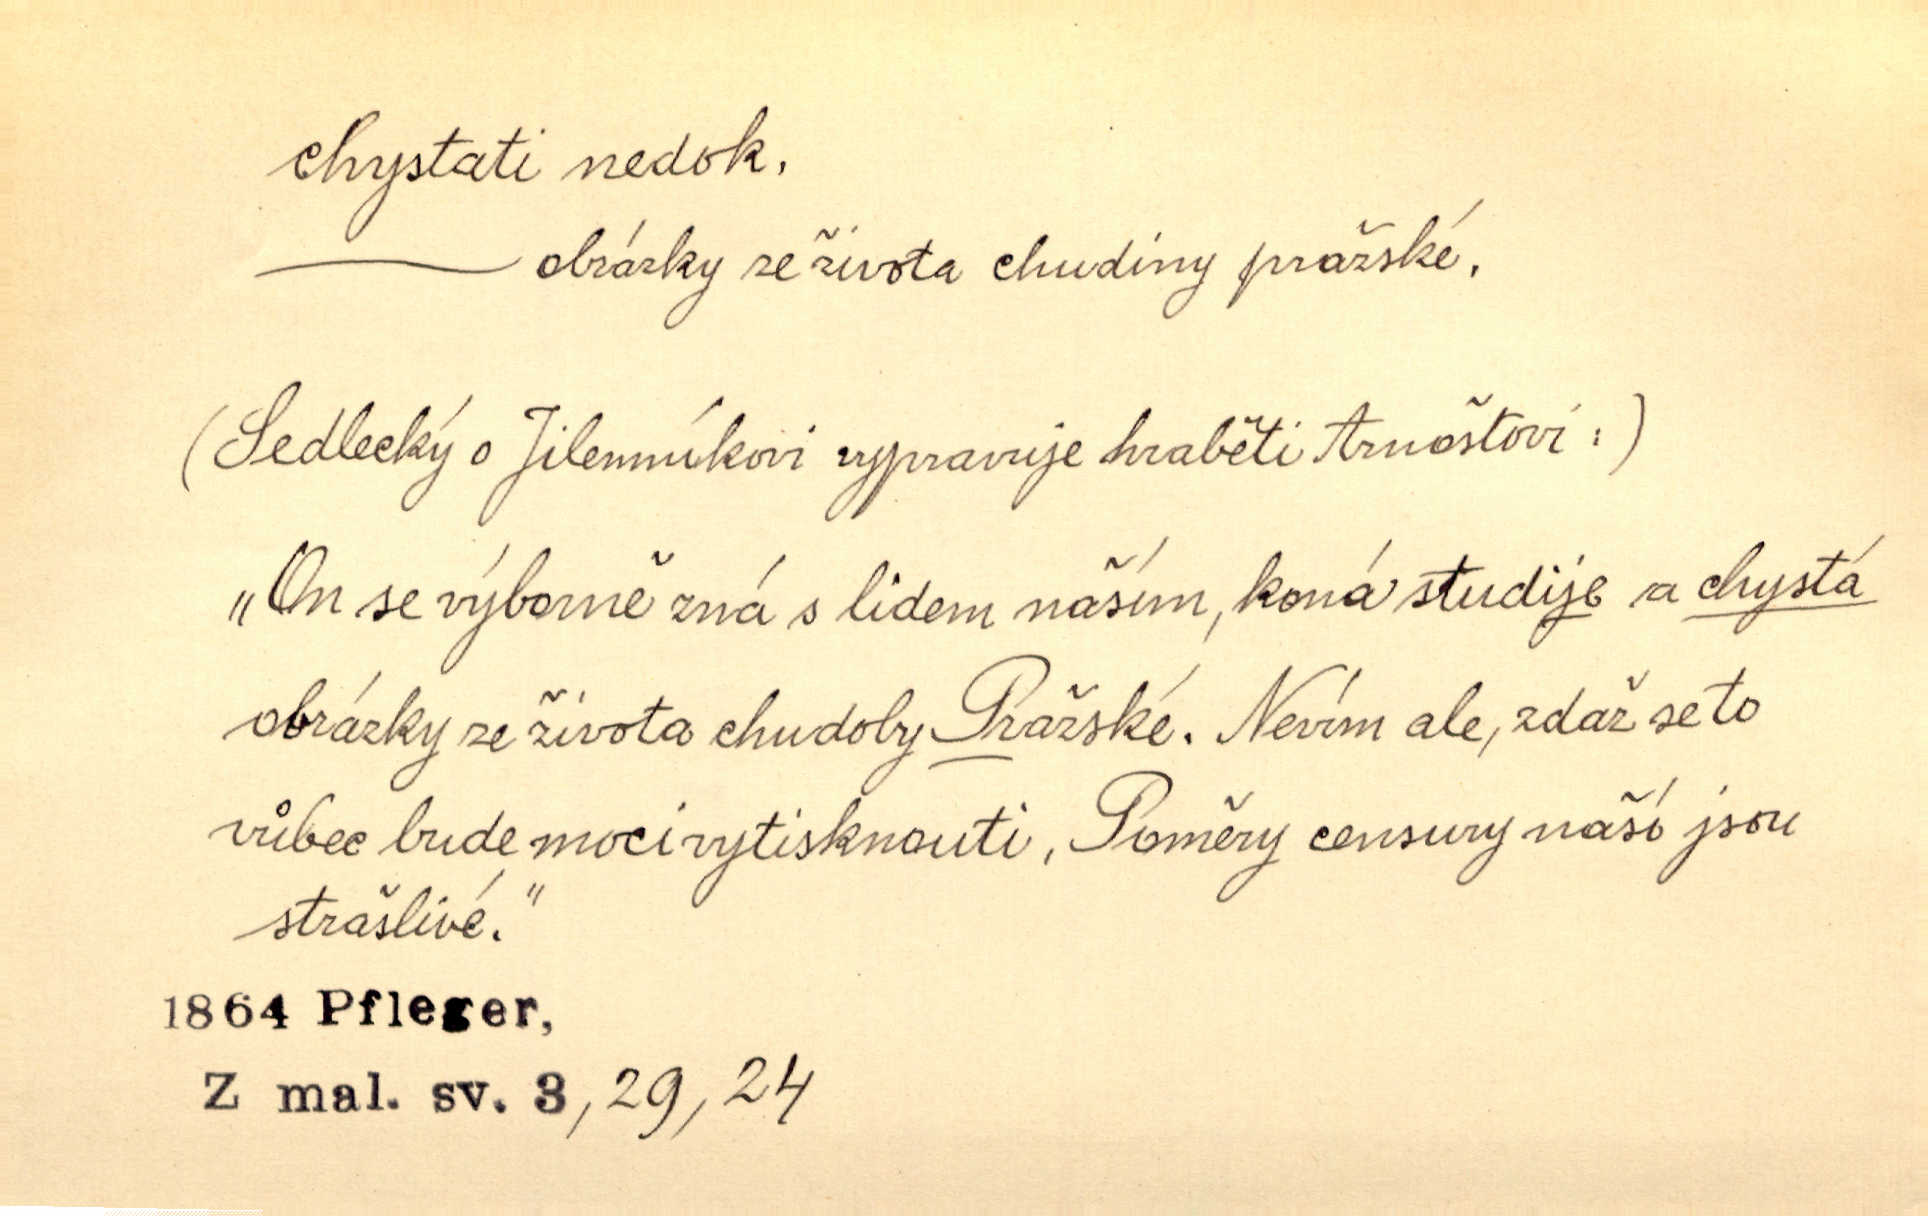 chystati nedok.
—— obrázky ze života chudiny pražské.
(Sedlecký o Jilemníkovi vypravuje hraběti Arnoštovi:)
„On se výborně zná s lidem naším, koná studije a chystá
obrázky ze života chudoby Pražské. Nevím ale, zdaž se to
vůbec bude moci vytisknouti, Poměry censury naší jsou
strašlivé."
1864 Pfleger,
Z mal. sv. 3, 29, 24